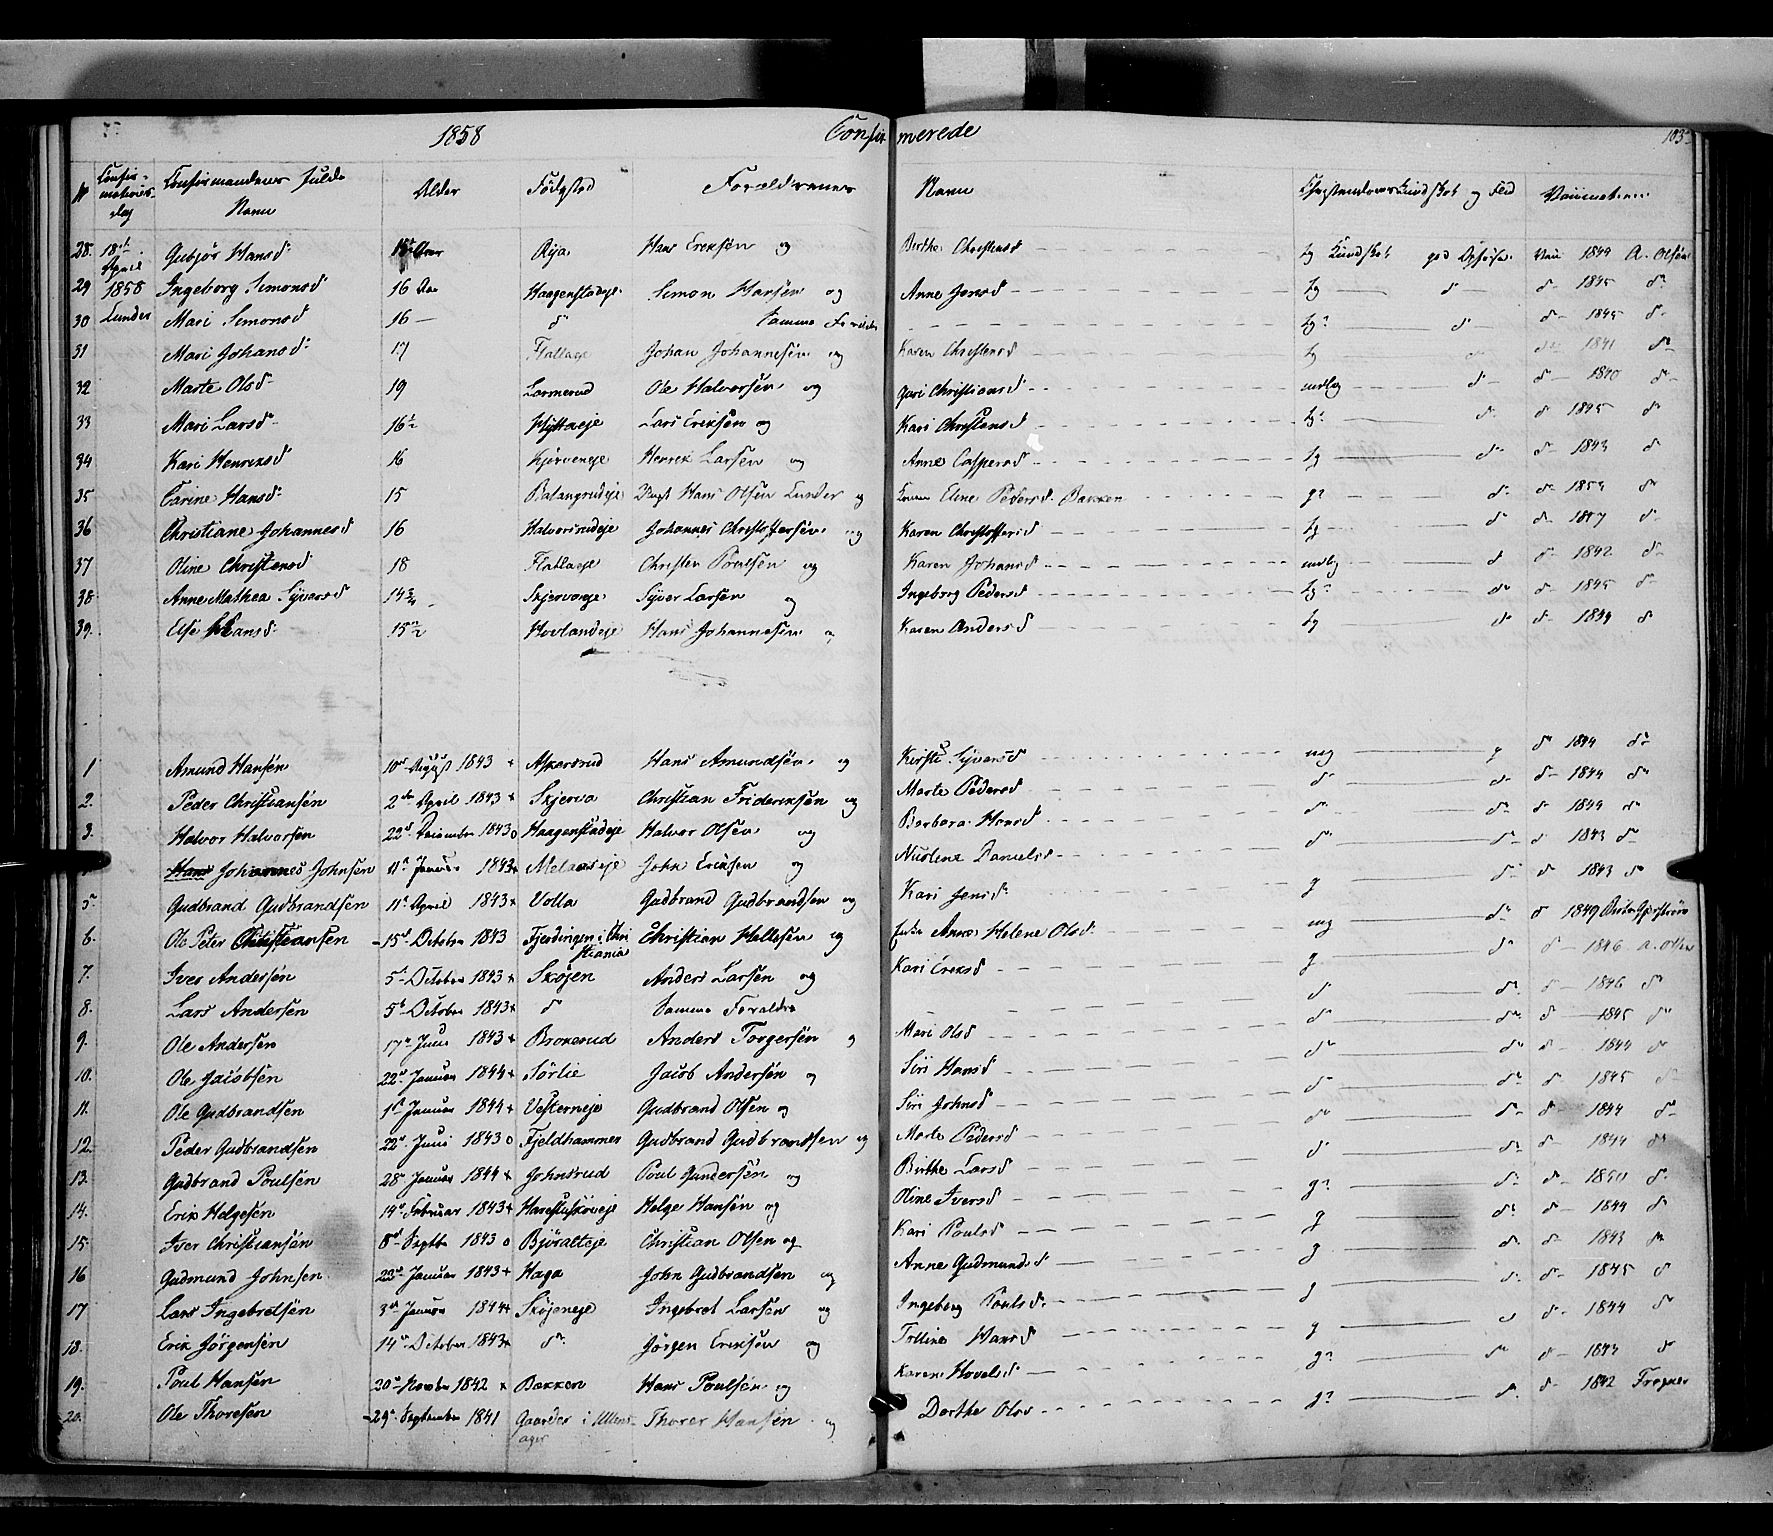 1858 Confirmerede 103
No Confirmations dag Confirmandenes fulde Navn Alder Födested Forældrenes Navn Christendoms Kundskab og Flid Vaccinationen
28. 18de April 1858 Lunder Gubjör Hansd: Rya Hans Eriksen og Berthe Christensd Kundskab god Opförsel Vac 1844 A. Olsen
29 Ingeborg Simonsd 16 Aar Haagenstadeje Simon Hansen og Anne Jensd tg d 1845 d
30 Mari Simonsd 16 d Samme Forældre tg? d 1845 d
31 Mari Johansd 17 Flatlaeje Johan Johannesen og Karen Christensd tg d 1841 d
32 Marte Olsd 19 Larmerud Ole Halvorsen og Gari Christiansd mdlg d 1840 d
33 Mari Larsd 16½ Hyttaeje Lars Eriksen og Kari Christensd tg? d 1845 d
34 Kari Henriksd 16 Kjörveneje Henrik Larsen og Anne Caspersd tg d 1843 d
35 Carine Hansd: 15 Batangrudeje Hans Olsen Lunder og Eline Pedersd. Bakken g? d 1854 d
36 Christiane Johannesd 16 Halvorsrudeje Johannes Christoffersen og Karen Christoffersd tg d 1847 d
37 Oline Christensd 18 Flatlaeje Christen Poulsen og Karen Johansd mdlg d 1842 d
38 Anne Mathea Syversd 14¾ Skjervaeje Syver Larsen og Ingeborg Pedersd tg? d 1845 d
39. Else Hansd: 15½ Hovlandeje Hans Johannesen og Karen Andersd tg d 1844 d
1 Amund Hansen 10de August 1843 + Askersrud Hans Amundsen og Kirsti Syversd mg g d 1844 d
2. Peder Christiansen 2den April 1843 + Skjerva Christian Frideriksen og Marte Pedersd d d 1844 d
3. Halvor Halvorsen 22d December 1843 o Haagenstadeje Halvor Olsen og Barbara Hansd d d 1844 d
Hans Johannes Johnsen 11te Januar 1843 + John Eriksen og Danielsd d d 1843 d
5 Gudbrand Gudbrandsen 11te April 1843 + Volla Gudbrand Gudbrandsen og Kari Jensd g d 1843 d
6. Ole Peter Christiansen 15de October 1843 Fjerdingen i Christiania Christian Hellesen og Anne Helene Olsd mg d 1849
7. Iver Andersen 5te October 1843 + Sköjen Anders Larsen og Kari Eriksd g d 1846 A. Olsen
8. Lars Andersen 5te October 1843 + d Samme Forældre d d 1846 d
9. Ole Andersen 17de Juni 1843 + Brokerud Anders Torgersen og Mari Olsd d d 1845 d
10. Ole Jacobsen 22de Januar 1844 + Sörlie Jacob Andersen og Siri Hansd d d 1844 d
11. Ole Gudbrandsen 1ste Januar 1844 + Vesterneje Gudbrand Olsen og Siri Johnsd d d 1845 d
12. Peder Gudbrandsen 22de Juni 1843 o Fjeldhammer Gudbrand Gudbrandsen og Marte Pedersd d d 1844 d
13. Gudbrand Poulsen 28de Januar 1844 + Johnsrud Poul Gundersen og Birthe Larsd d d 1844 d
14. Erik Helgesen 14de Februar 1843 + Helge Hansen og Oline Iversd g? d 1850 d
15. Iver Christiansen 8de Septbr 1843 o Björalteje Christian Olsen og Kari Poulsd g d 1844 d
16 Gudmund Johnsen 23de Januar 1843 + Haga John Gudbrandsen og Anne Gudmundsd g d 1843 d
17 Lars Ingebretsen 3die Januar 1844 + Sköjeneje Ingebret Larsen og Ingeborg Poulsd g d 1845 d
18. Erik Jörgensen 14de October 1843 + d Jörgen Eriksen og Hansd g d 1844 d
19. Poul Hansen 20de Novbr 1842 x Bakken Hans Poulsen og Karen Hovelsd g? d 1843 d
20. Ole Thoresen 29de September 1841 Gaarder i Ullensager Thorer Hansen og Dorthe Olsd g? d 1842 Frogner